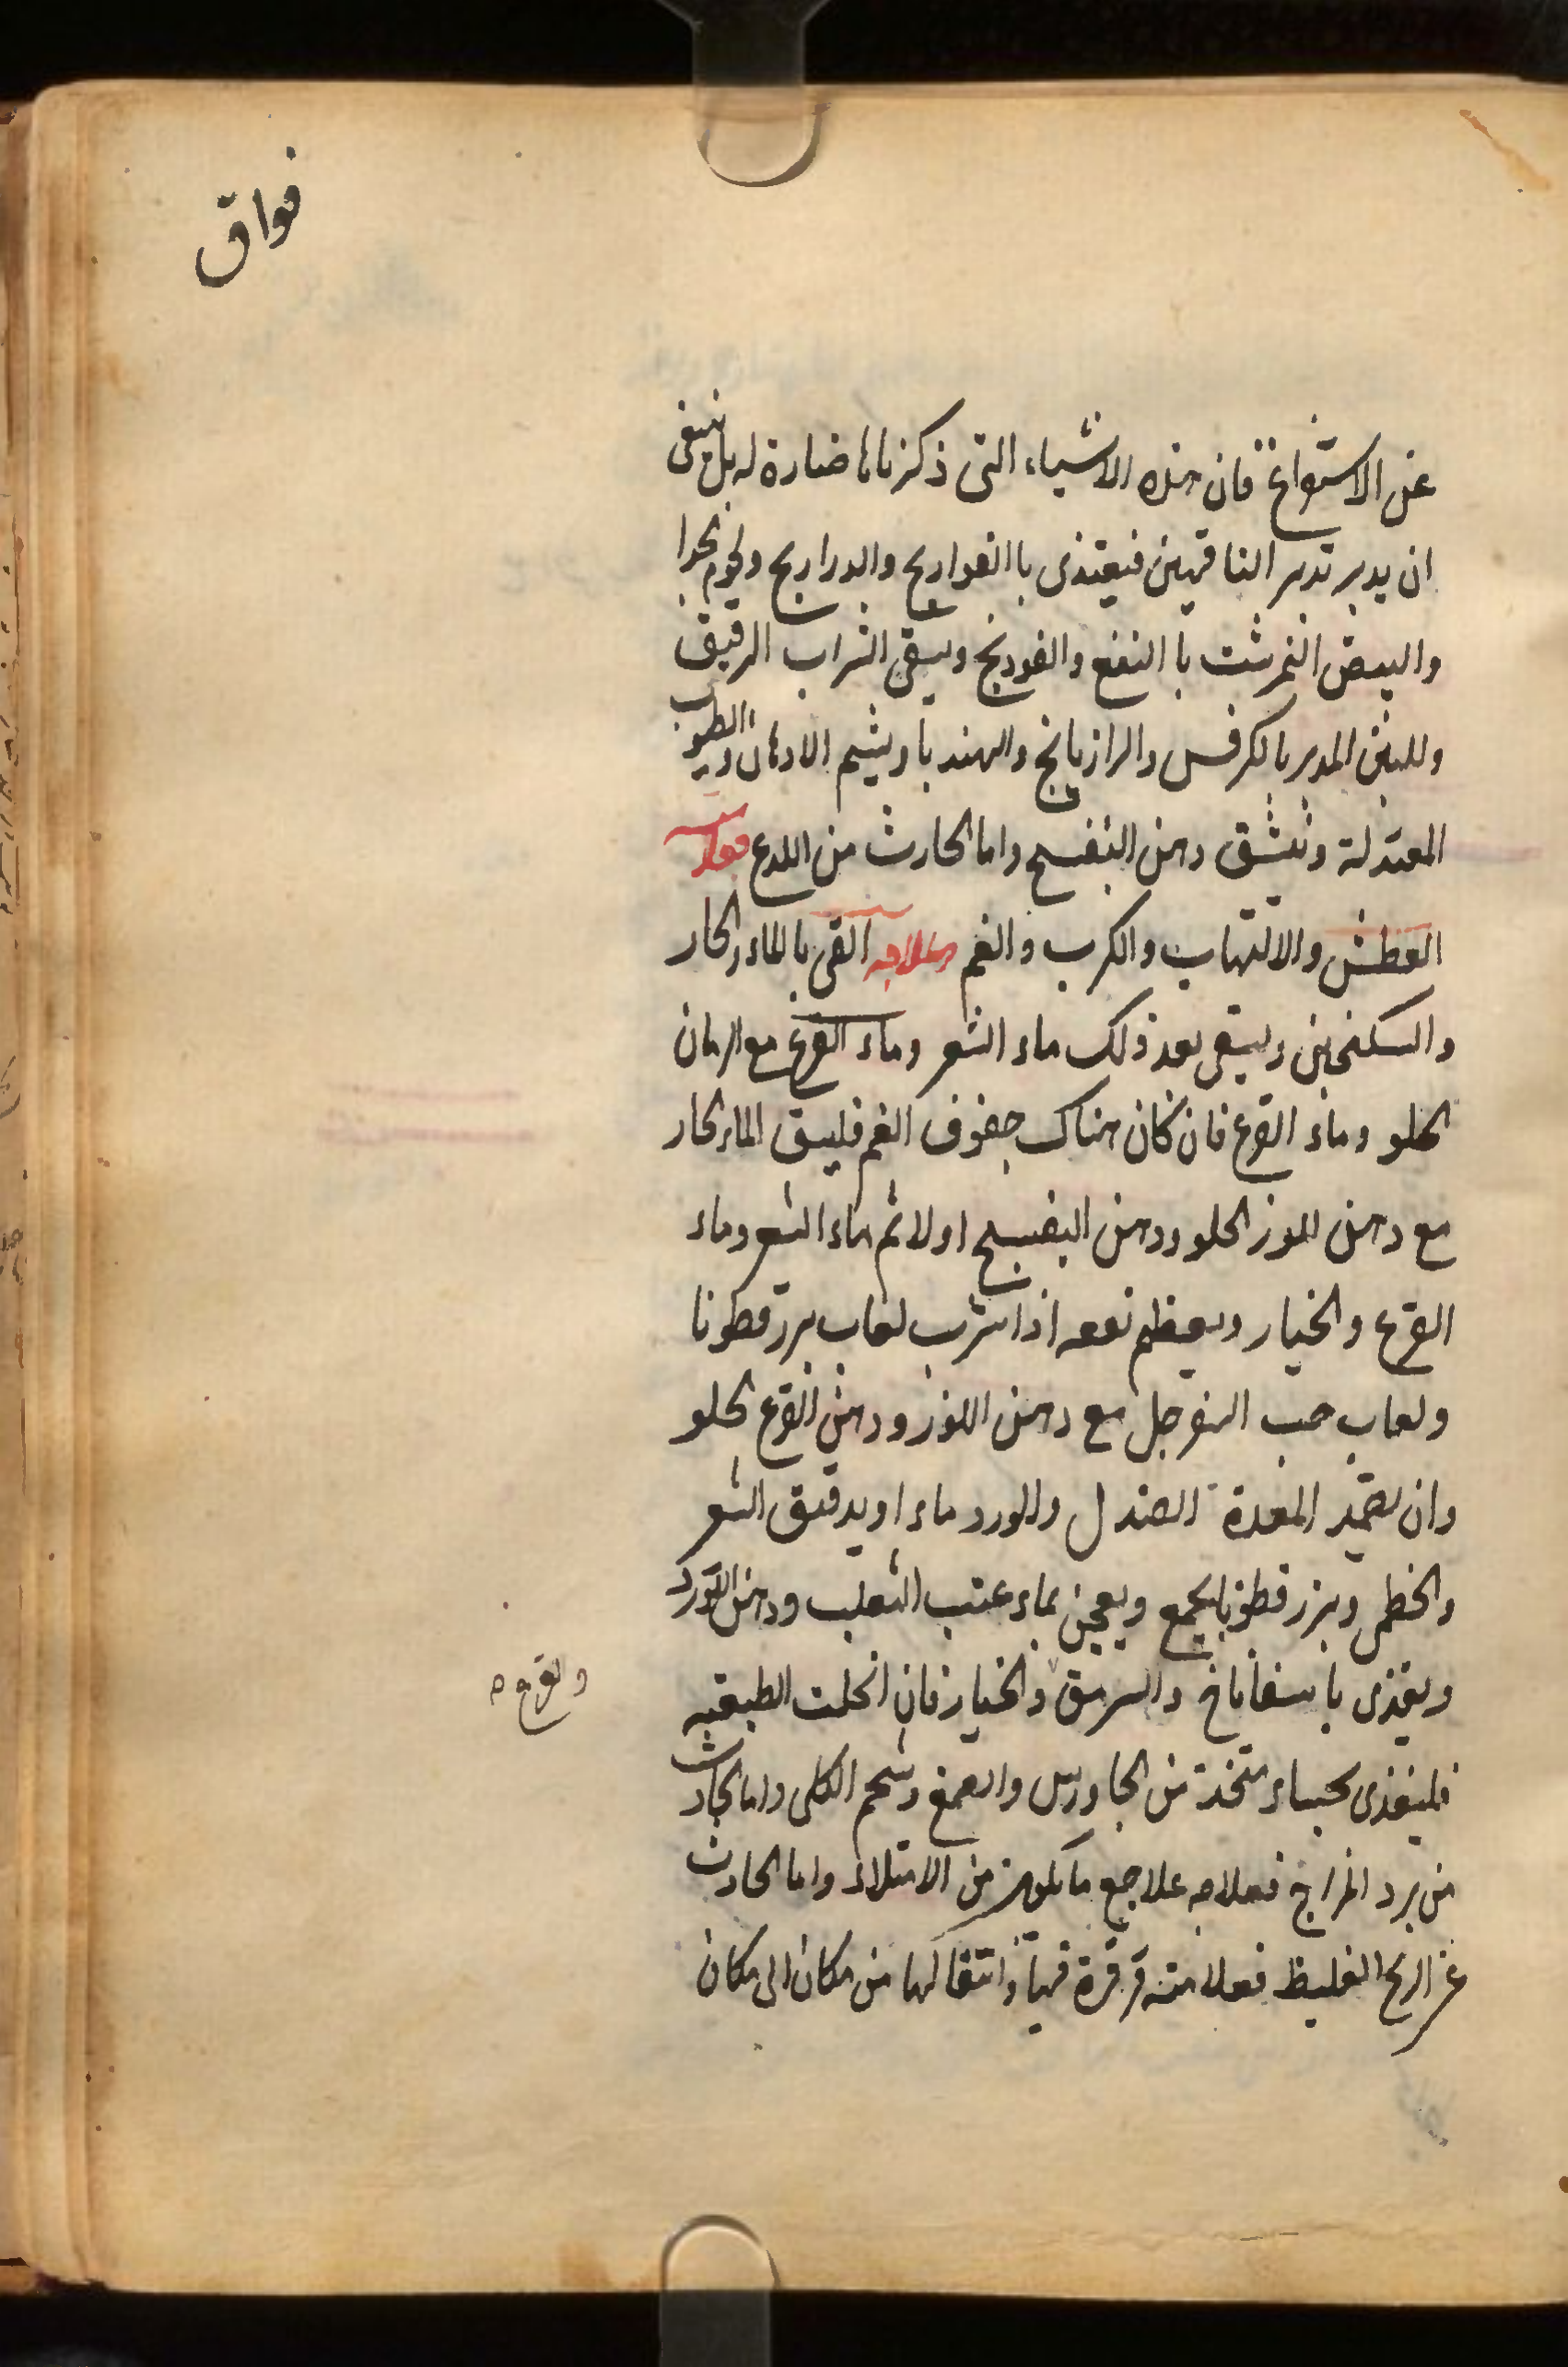 فواق
عن الاستفراغ فان هذه الاشياء التى ذكرناها ضارة له بل ينبغى
ان يدبر تدبير الناقهين فيغتذى با الفواريج والدراريج ولحوم الجدا
والبيض النمرشت با النعنع والفودنج ويسقى الشراب الرقيق
واللبن المدبر بالكرفس والرازيانج والهندبا ويشم الادهان والطيوب
المعتدلة وينشق دهن البنفسج واما الحادث من اللدع فعلامته
العطش والالتهاب والكرب والغم وعلاجه القى بالماء الحار
والسكنجبين ويسقى بعد ذلك ماء الشعير وماء القرع مع الرمان
الحلو وماء القرع فان كان هناك جفوف الفم فليسق الماء الحار
مع دهن اللوز الحلو ودهن البنفسج اولا ثم ماء الشعير وماء
القرع والخيار ويعظم نفعه اذا شرب لعاب بزرقطونا
ولعاب حب السفرجل مع دهن اللوز ودهن القرع الحلو
وان تضمد المعدة الصندل والورد ماء او بدقيق الشعير
والخطمى وبزر قطونا يجمع ويعجن بماء عنب الثعلب ودهن الورد
ويغذى با سفاناخ والسرمق والخيار فان انحلت الطبيعة
والقرع م
فليغذى بحساء متخذ من الجاورس والصمغ وشحم الكلى واما الحادث
من برد المزاج فعلاجه علاج ما يكون من الامتلاء واما الحادث
عن الريح الغليظ فعلامته قرقرة فيها وانتقالها من مكان الى مكان